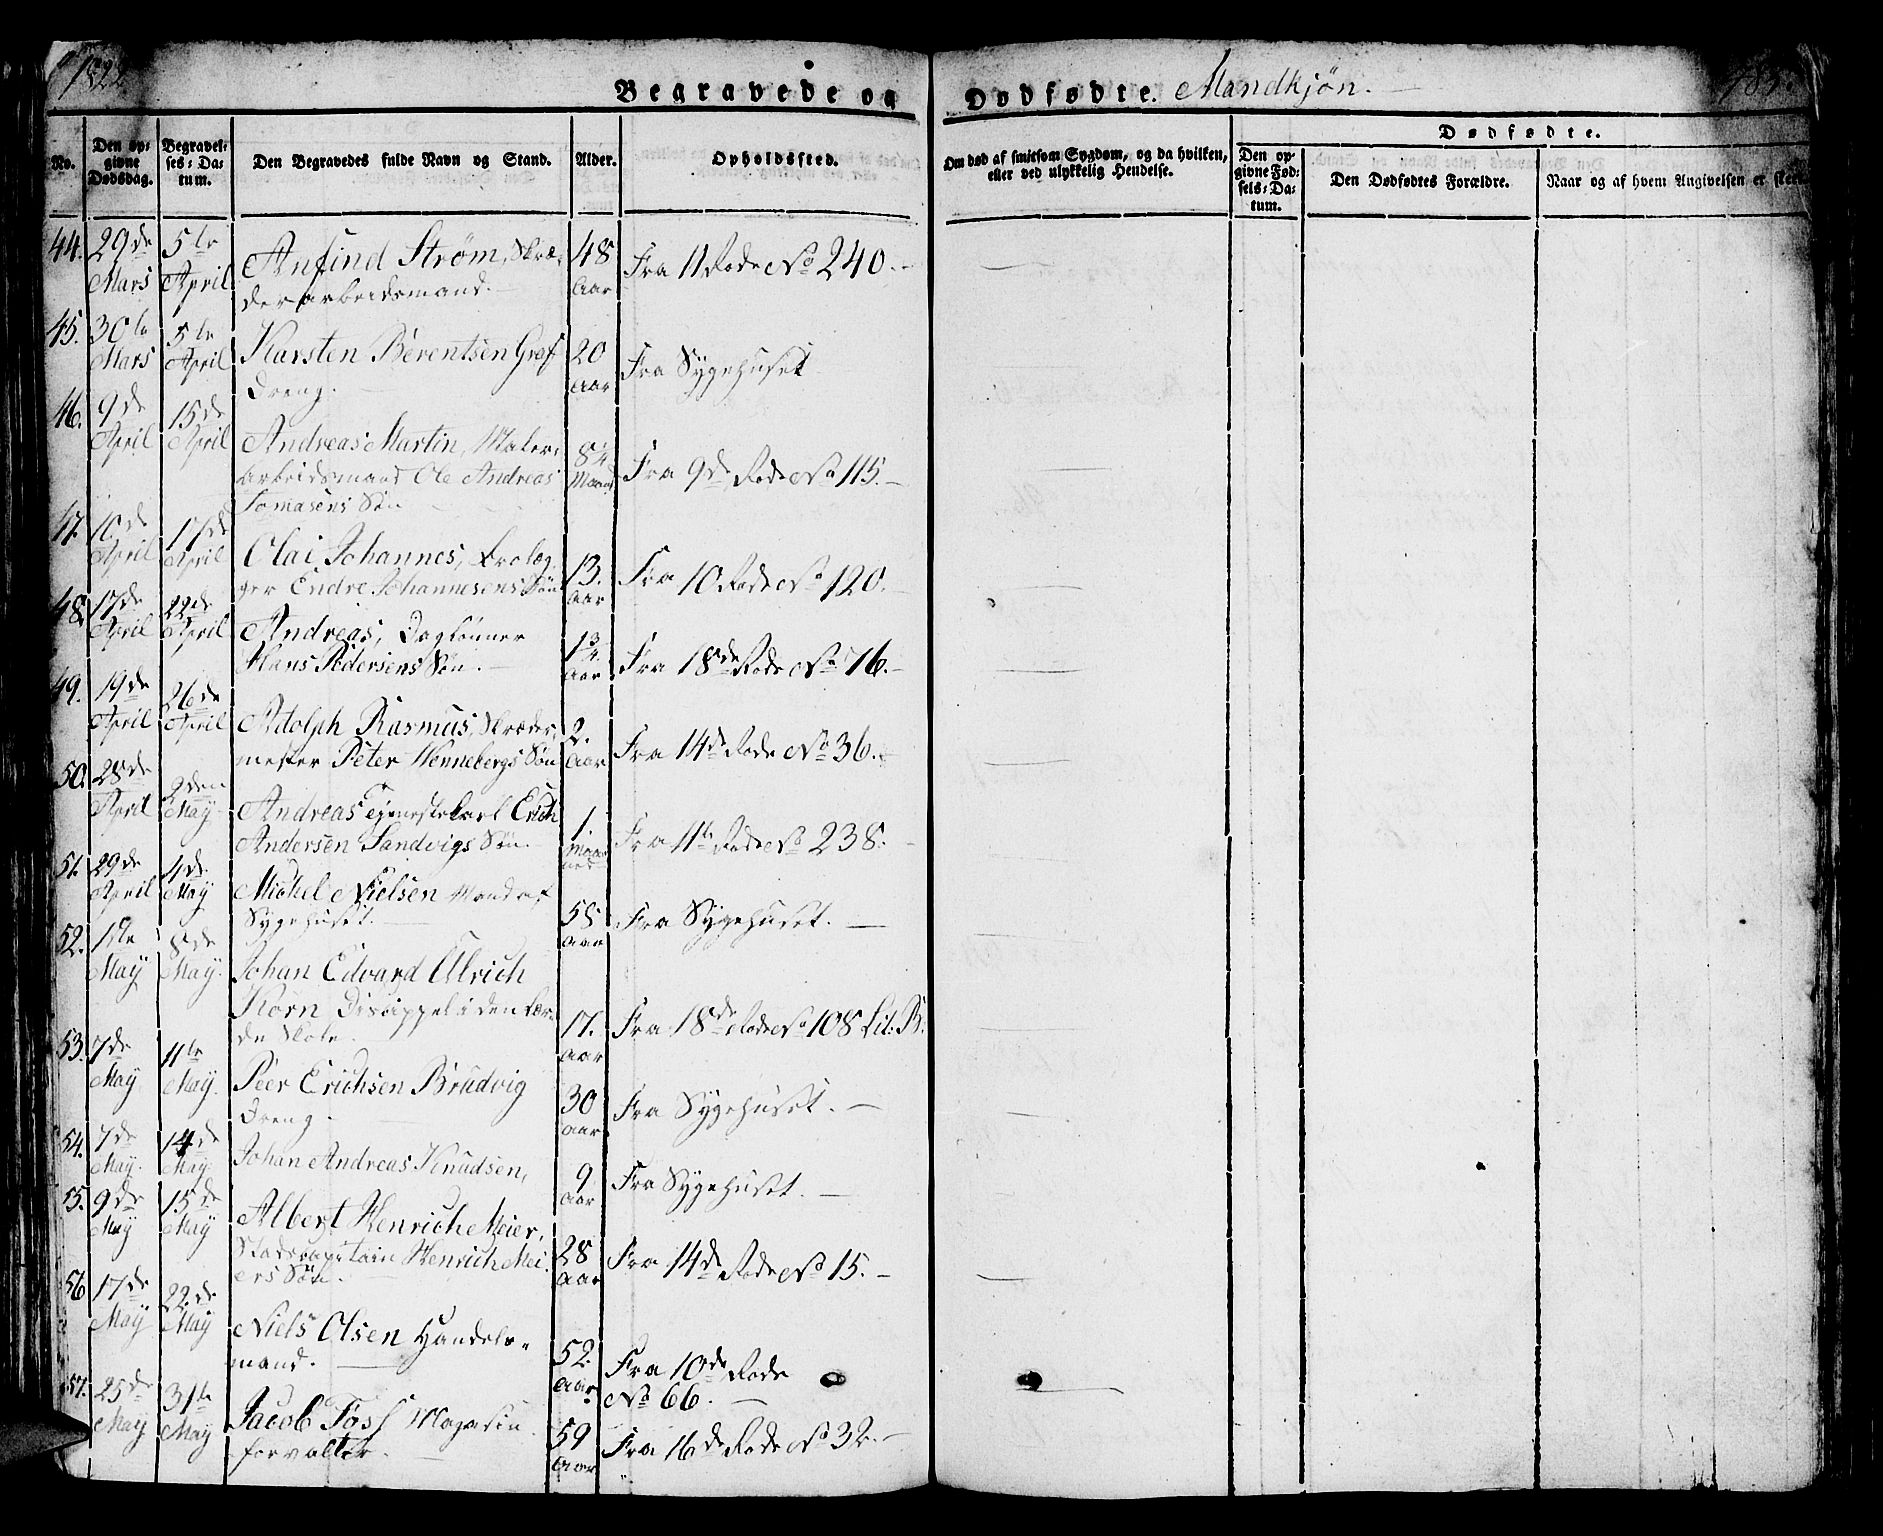 182
Begravede og Dødfødte. Mandkjøn.
No.
Den opgivne Dødsdag.
Begravelses-Datum.
Den Begravedes fulde Navn og Stand.
Alder.
Opholdssted.
Om død af smitsom Sygdom, og da hvilken, eller ved ulykkelig Hendelse.
Dødfødte.
Den opgivne Fødsels-Datum.
Den Dødfødtes Forældre.
Naar og af hvem Angivelsen er skeet
44. 29de Mars 5te April Anfind Strøm, Skræ- 48 Aar Fra 11 Rode No 240.
derarbeidsmand.
45. 30te Mars 5te April Karsten Berentsen Graf 20 Aar Fra Sygehuset
Dreng.
46. 9de April 15de April Andreas Martin, Maler- 8 1/4 Maaned Fra 9de Rode No 115.
arbeidsmand Ole Andreas
Tomasens Søn
47. 10de April 17de April Olai Johannes, Brolæg- 13. Aar Fra 10 Rode No 120.
ger Endre Johannesens Søn
48. 17de April 22de April Andreas, Daglønner 1 3/4 Aar Fra 18de Rode No 76.
Hans Pedersens Søn.
49. 19de April 26de April Adolph Rasmus, Skræder- 2. Aar Fra 14de Rode No 36.
mester Peter Hennebergs Søn
50. 28de April 2den May Andreas Tjenestekarl Erich 1. Maaned Fra 11te Rode No 238.
Andersen Sandvigs Søn.
51. 29de April 4de May Michel Nielsen Mand af 58 Aar Fra Sygehuset.
Sygehuset.
52. 1ste May 8de May. Johan Edvard Ulrich
Korn Disippel i den lær- 17. Aar Fra 18de Rode No 108 Lit: B.
de Skole.
53. 7de May 11te May. Peer Erichsen Brudvig 30 Aar Fra Sygehuset.
Dreng.
54. 7de May. 14de May Johan Andreas Knudsen, 9 Aar Fra Sygehuset.
55. 9de May 15de May Albert Henrich Meier, 28 Aar Fra 14de Rode No 15.
Stadscapitain Henrich Mei-
ers Søn.
56 17de May 22de May Niels Olsen Handels- 52. Aar. Fra 10de Rode
mand. No 66.
57. 25de May 31te May Jacob Foss Magasin- 59 Aar Fra 16de Rode No 32.
forvalter.